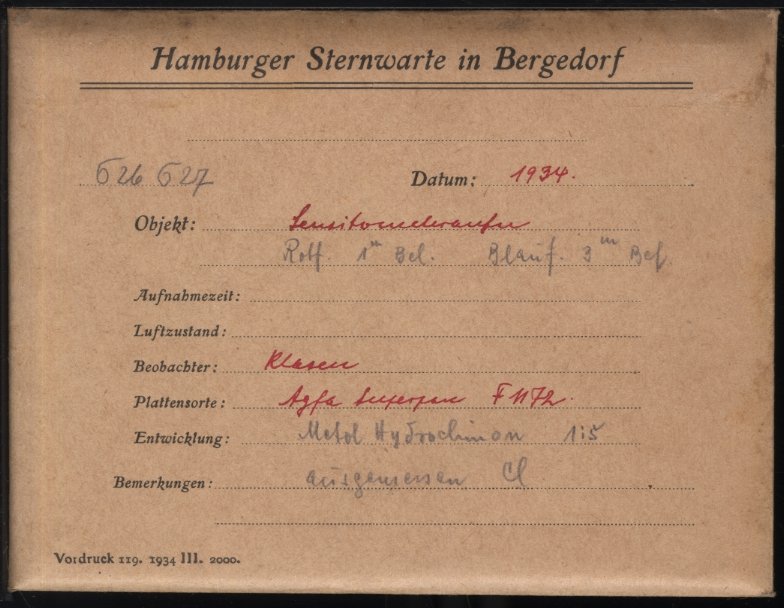 Hamburger Sternwarte in Bergedorf
626 627 Datum: 1934.
Objekt: Sensitometeraufn
Rotf. 1ᵐ Bel. Blauf. 3ᵐ Bel.
Aufnahmezeit:
Luftzustand:
Beobachter: Klasen
Plattensorte: Agfa Superpan F1172
Entwicklung: Metol Hydrochinon 1:5
Bemerkungen: ausgemessen Cl
Vordruck 119. 1934 III. 2000.